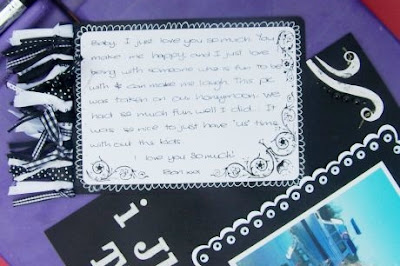 Baby, I just love you so much. You
make me happy, and I just love
being with someone who is fun to be
with & can make me laugh. This pic
was taken on our honeymoon. We
had so much fun. Well I did... It
was so nice to just have 'us' time
with out the kids.
I love you so much!
xxx
i J